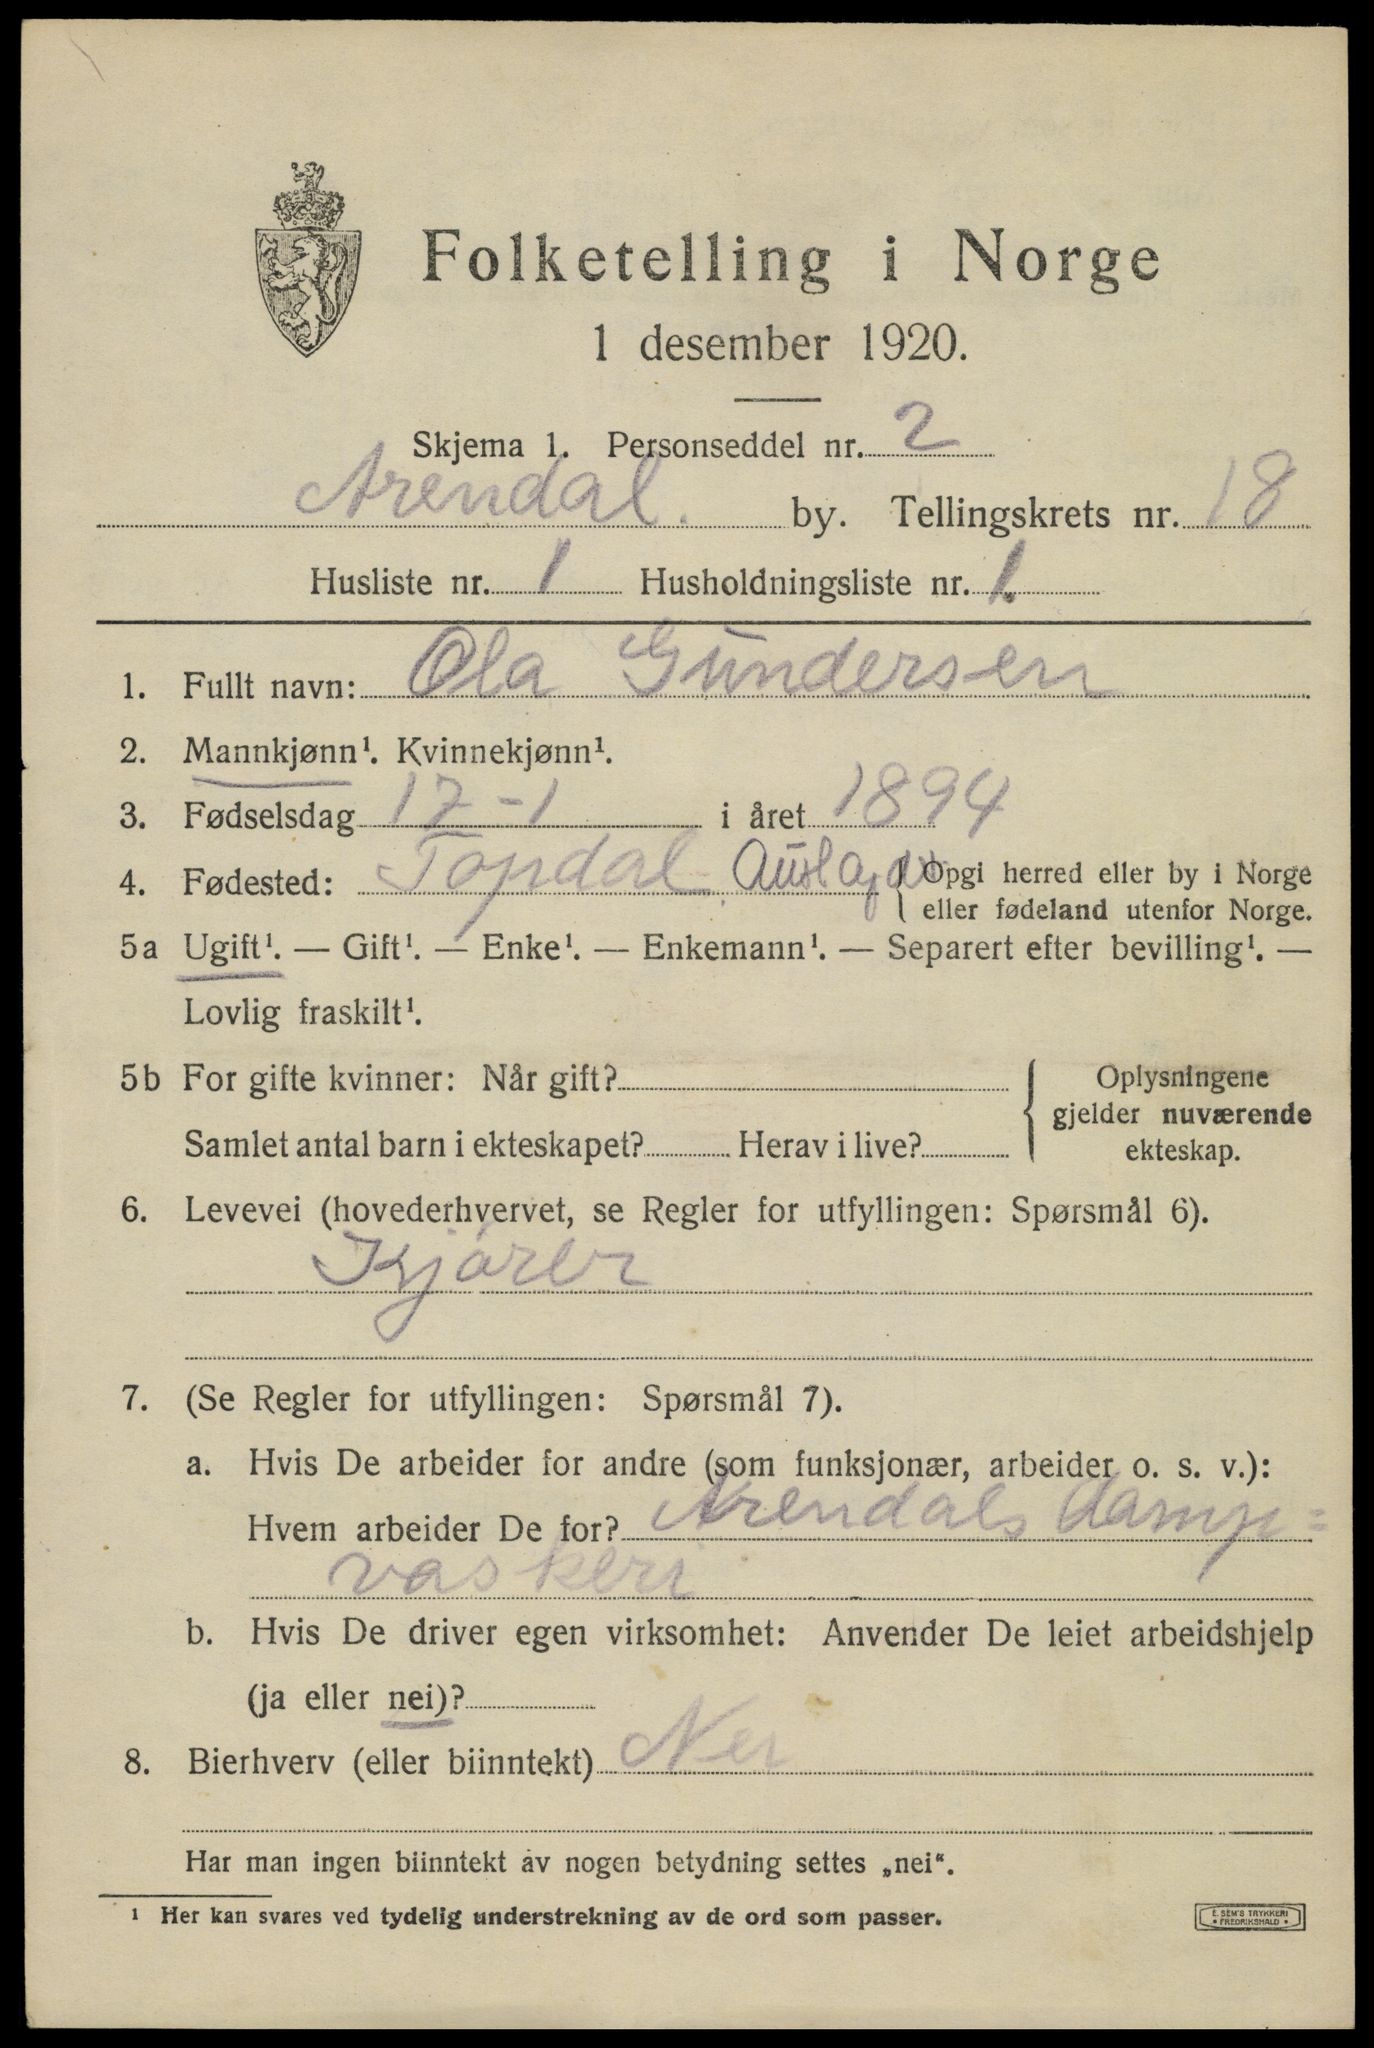 Folketelling i Norge
1 desember 1920.
Skjema 1. Personseddel nr. 2
Arendal. by. Tellingskrets nr. 18
Husliste nr. 1 Husholdningsliste nr. 1.
1. Fullt navn: Ola Gundersen
2. Mannkjønn¹. Kvinnekjønn¹.
3. Fødselsdag 17-1 i året 1894
4. Fødested: Topdal Aust Agder { Opgi herred eller by i Norge
eller fødeland utenfor Norge.
5a Ugift¹. — Gift¹. — Enke¹. — Enkemann¹. — Separert efter bevilling¹. —
Lovlig fraskilt¹.
5b For gifte kvinner: Når gift? { Oplysningene
gjelder nuværende
Samlet antal barn i ekteskapet? Herav i live? ekteskap.
6. Levevei (hovederhvervet, se Regler for utfyllingen: Spørsmål 6).
Kjører
7. (Se Regler for utfyllingen: Spørsmål 7).
a. Hvis De arbeider for andre (som funksjonær, arbeider o. s. v.):
Hvem arbeider De for? Arendals damp=
vaskeri
b. Hvis De driver egen virksomhet: Anvender De leiet arbeidshjelp
(ja eller nei)?
8. Bierhverv (eller biinntekt) Nei
Har man ingen biinntekt av nogen betydning settes „nei“.
¹ Her kan svares ved tydelig understrekning av de ord som passer.
E. SEM'S TRYKKERI
• FREDRIKSHALD •